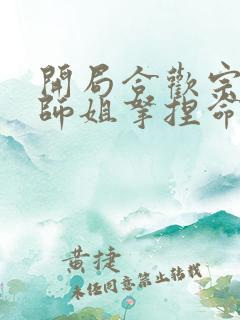 開局合歡宗
師姐拿捏命
黃捷
未任同意禁止转载